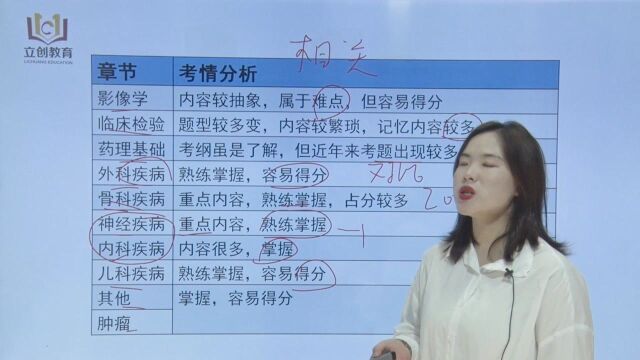 立创教育
LICHUANG EDUCATION
相关
章节 考情分析
影像学 内容较抽象，属于难点，但容易得分
临床检验 题型较多变，内容较繁琐，记忆内容较多
药理基础 考纲虽是了解，但近年来考题出现较多
外科疾病 熟练掌握，容易得分
骨科疾病 重点内容，熟练掌握，占分较多 20
神经疾病 重点内容，熟练掌握
内科疾病 内容很多，掌握
儿科疾病 熟练掌握，容易得分
其他 掌握，容易得分
肿瘤